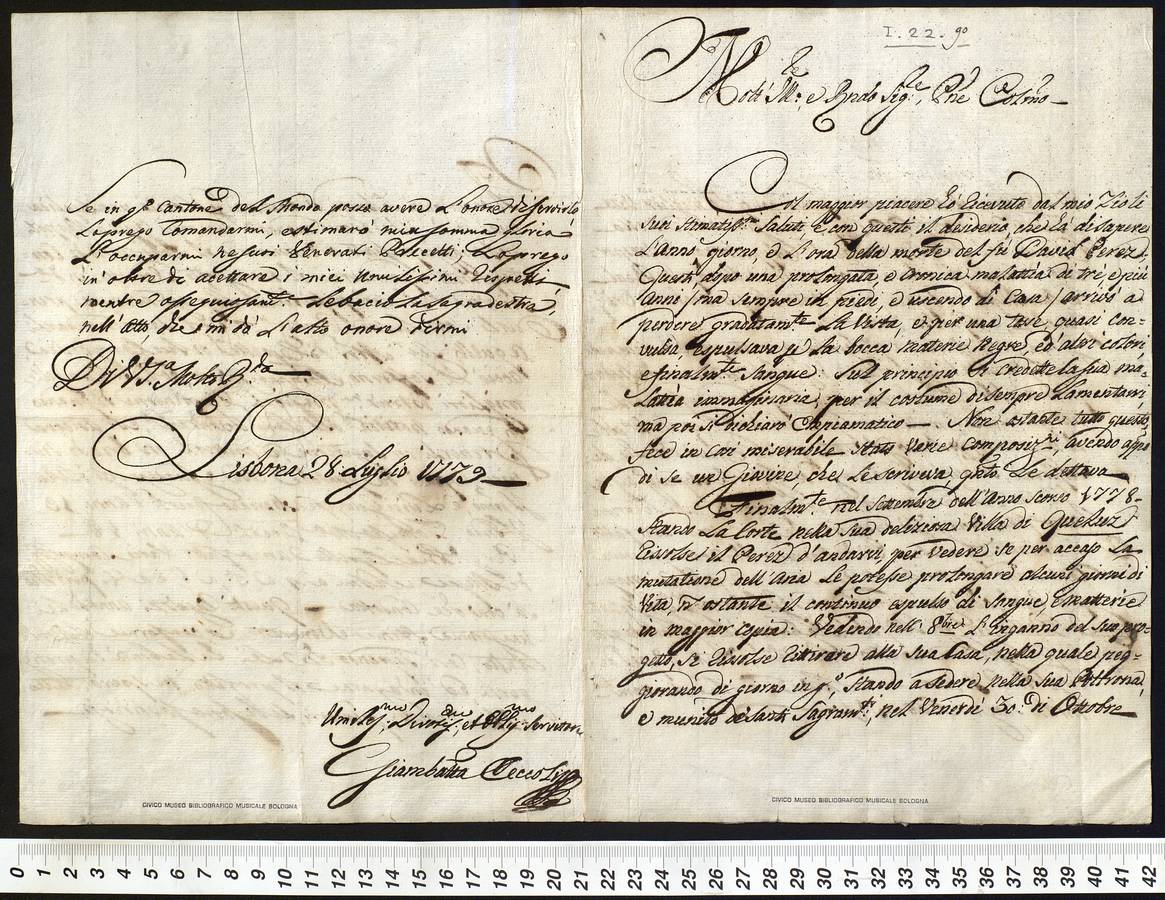 Se in qto Cantone del Mondo posso avere L'onore di servirlo
La prego Comandarmi, e stimarò mia somma gloria
L'occuparmi ne suoi Venerati Precetti; La prego
in oltre di accettare i miei umilissimi rispetti
mentre ossequiosamte Le bacio la Sagra destra,
nell'atto, che mi dà L'alto onore dirmi
Di V. Sa Molto Rda
Lisbona 28 Luglio 1779
Umilmo, Divmo, et Obligmo Servitore
Giambatta
CIVICO MUSEO BIBLIOGRAFICO MUSICALE BOLOGNA
I. 22. 90
Molt' Ille: e Rndo Sigre, Pne Colmo
Col maggior piacere ho ricevuto dal mio Zio li
suoi stimatissmi Saluti e con questi il desiderio, che hà di sapere
L'anno giorno, e L'ora della morte del fù David Perez.
Questi, dopo una prolongata, e cronica malattia di tre, e più
Anni / ma sempre in piedi, e uscendo di Casa / arrivò a
perdere gradatamte La Vista, e per una tosse quasi con=
vulsa, espulsava p la bocca materie Negre, ed'altri colori
e finalmte Sangue: Sul principio si credette la sua ma=
Lattia immaginaria, per il costume di sempre Lamentarsi,
ma poi si dichiarò Non ostante tutto questo,
fece in così miserabile stato varie Composizni, avendo appo
di se un Giovine, che Le scriveva, qnto Le dettava
Finalmte nel Settembre dell'Anno scorso 1778.
stando La Corte nella sua deliziosa Villa di Queluz
risolse il Perez d'andarvi, per vedere se per accaso La
mutatione dell'Aria Le potesse prolongare alcuni giorni di
Vita, nō ostante il continuo espulso di Sangue, e matterie
in maggior copia: Vedendo nell' 8bre L'inganno del suo pro=
getto, si risolse ritirare alla sua Casa, nella quale peg=
giorando di giorno in go, stando a sedere nella sua Poltrona,
e munito de Santi Sagramti, nel Venerdì 30: di Ottobre
CIVICO MUSEO BIBLIOGRAFICO MUSICALE BOLOGNA
0 1 2 3 4 5 6 7 8 9 10 11 12 13 14 15 16 17 18 19 20 21 22 23 24 25 26 27 28 29 30 31 32 33 34 35 36 37 38 39 40 41 42